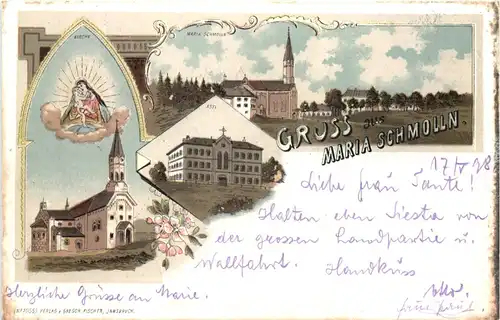 KIRCHE
MARIA SCHMOLLN
ASYL
GRUSS aus
MARIA SCHMOLLN.
17/V 98
Liebe Frau Tante!
Halten eben Siesta von
der grossen Landpartie u.
Wallfahrt. Handkuss
Otto.
Herzliche Grüsse an Marie.
VERLAG v. GEBSCH. FISCHER, INNSBRUCK.